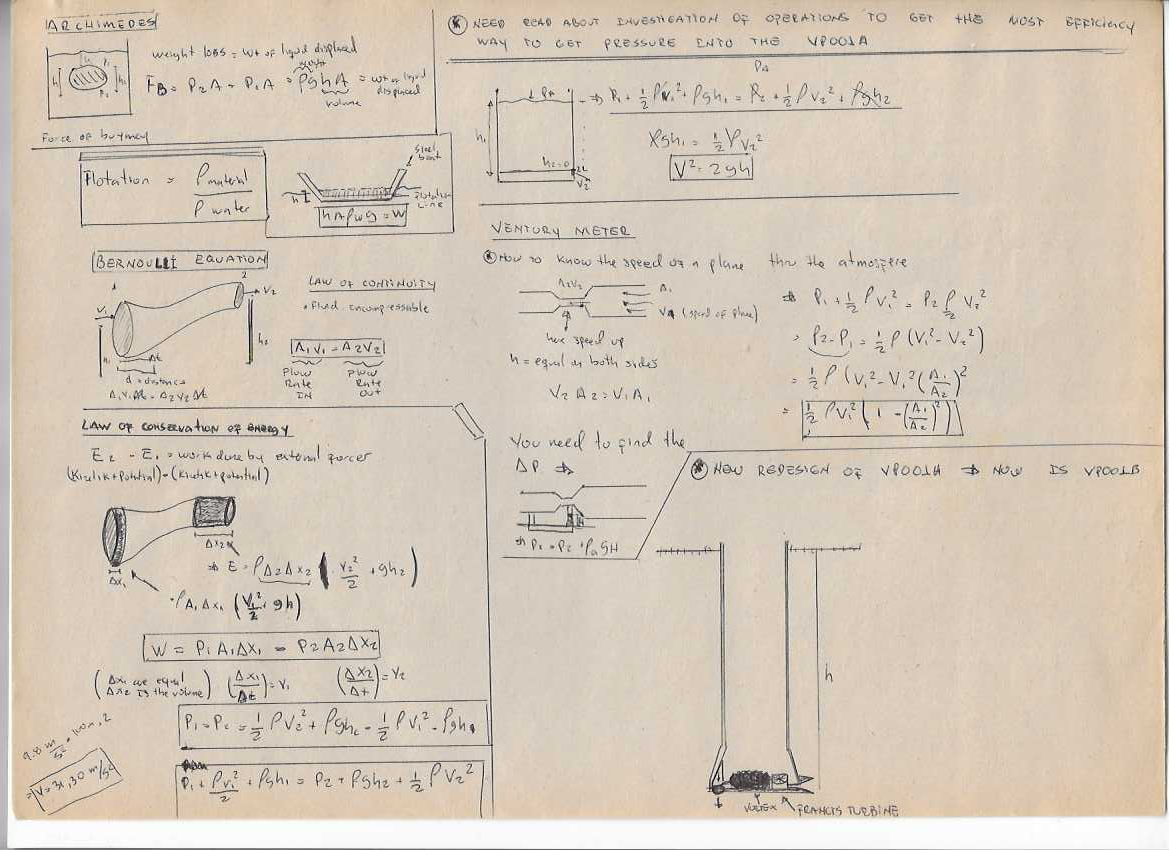 ARCHIMEDES
weight loss = wt of liquid displaced
weight
F_B = P2A - P1A = ρghA = wt of liquid displaced
volume
Force of buymcy
Flotation = ρ material / ρ water
steel boat
h
flotation line
hAρwg = W
BERNOULLI EQUATION
1
2
V1
V2
h1
h2
Δt
d = distance
A1V1Δt = A2V2Δt
LAW OF CONTINUITY
• Fluid incompressable
A1V1 = A2V2
FLOW RATE IN
FLOW RATE OUT
LAW OF CONSERVATION OF ENERGY
E2 - E1 = work done by external forces
(Kinetik+Potential)-(Kinetik+potential)
Δx2
Δx1
⇒ E = ρA2Δx2 ( V2²/2 + gh2 )
• ρA1Δx1 ( V1²/2 + gh )
W = P1A1Δx1 - P2A2Δx2
( Δx1 are equal
Δx2 is the volume )
(Δx1/Δt) = V1
(Δx2/Δt) = V2
P1 = P2 = ½ρV2² + ρgh2 - ½ρV1² - ρgh1
P1 + ρV1²/2 + ρgh1 = P2 + ρgh2 + ½ρV2²
9.8 m/s² • 100m • 2
= V = 31,30 m/s²
* NEED READ ABOUT INVESTIGATION OF OPERATIONS TO GET THE MOST EFFICIENCY
WAY TO GET PRESSURE INTO THE VP001A
PA
↓ PA
⇒ P1 + ½ρV1² + ρgh1 = P2 + ½ρV2² + ρgh2
h1
h2=0
V2
ρgh1 = ½ρV2²
V² = 2gh
VENTURY METER
* How to know the speed of a plane thru the atmospere
A2V2
A1
V1 (speed of plane)
here speed up
h = equal on both sides
V2A2 = V1A1
⇒ P1 + ½ρV1² = P2 ρ/2 V2²
= P2 - P1 = ½ρ (V1² - V2²)
= ½ρ (V1² - V1² (A1/A2)²
= ½ρV1² ( 1 - (A1/A2)² )
You need to find the
ΔP ⇒
⇒ P1 = P2 + ρagH
* NEW REDESIGN OF VP001A ⇒ NOW IS VP001B
h
VORTEX
FRANCIS TURBINE